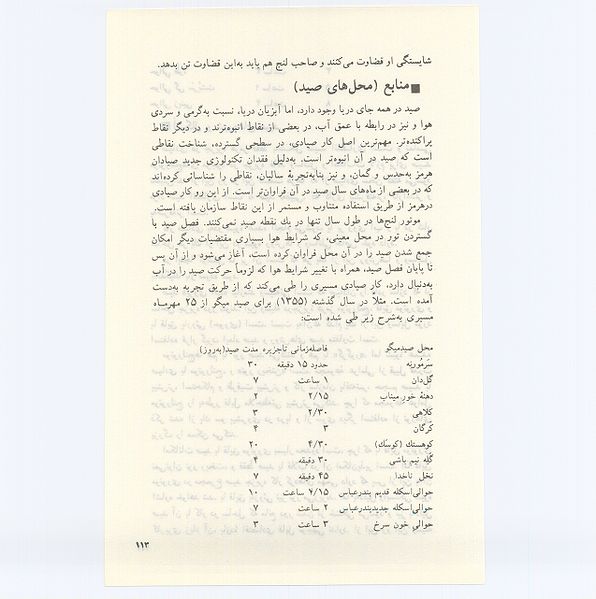 شایستگی او قضاوت می‌کنند و صاحب لنج هم باید به‌این قضاوت تن بدهد.
■ منابع (محل‌های صید)
صید در همه جای دریا وجود دارد، اما آبزیان دریا، نسبت به‌گرمی و سردی
هوا و نیز در رابطه با عمق آب، در بعضی از نقاط انبوه‌ترند و در دیگر نقاط
پراکنده‌تر. مهم‌ترین اصل کار صیادی، در سطحی گسترده، شناخت نقاطی
است که صید در آن انبوه‌تر است. به‌دلیل فقدان تکنولوژی جدید صیادان
هرمز به‌حدس و گمان، و نیز بنابه‌تجربهٔ سالیان، نقاطی را شناسائی کرده‌اند
که در بعضی از ماه‌های سال صید در آن فراوان‌تر است. از این رو کار صیادی
درهرمز از طریق استفاده متناوب و مستمر از این نقاط سازمان یافته است.
موتور لنج‌ها در طول سال تنها در یك نقطه صید نمی‌کنند. فصل صید با
گستردن تور در محل معینی، که شرایط هوا بسیاری مقتضیات دیگر امکان
جمع شدن صید را در آن محل فراوان کرده است، آغاز می‌شود و از آن پس
تا پایان فصل صید، همراه با تغییر شرایط هوا که لزوماً حرکت صید را در آب
به‌دنبال دارد، کار صیادی مسیری را طی می‌کند که از طریق تجربه به‌دست
آمده است. مثلاً در سال گذشته (۱۳۵۵) برای صید میگو از ۲۵ مهرماه
مسیری به‌شرح زیر طی شده است:
محل صیدمیگو فاصله‌زمانی تاجزیره مدت صید(به‌روز)
سَرمُوریَه حدود ۱۵ دقیقه ۳۰
گل‌دان ۱ ساعت ۷
دهنهٔ خور میناب ۲/۱۵ ۲
کلاهی ۲/۳۰ ۳
کَرگان ۳ ۴
کوهستك (کوسك) ۴/۳۰ ۲۰
گَله نیم باشی ۳۰ دقیقه ۴
نخل ناخدا ۴۵ دقیقه ۷
حوالی‌اسکله قدیم بندرعباس ۲/۱۵ ساعت ۱۰
حوالی‌اسکله جدیدبندرعباس ۲ ساعت ۷
حوالی خون سرخ ۳ ساعت ۳
۱۱۳